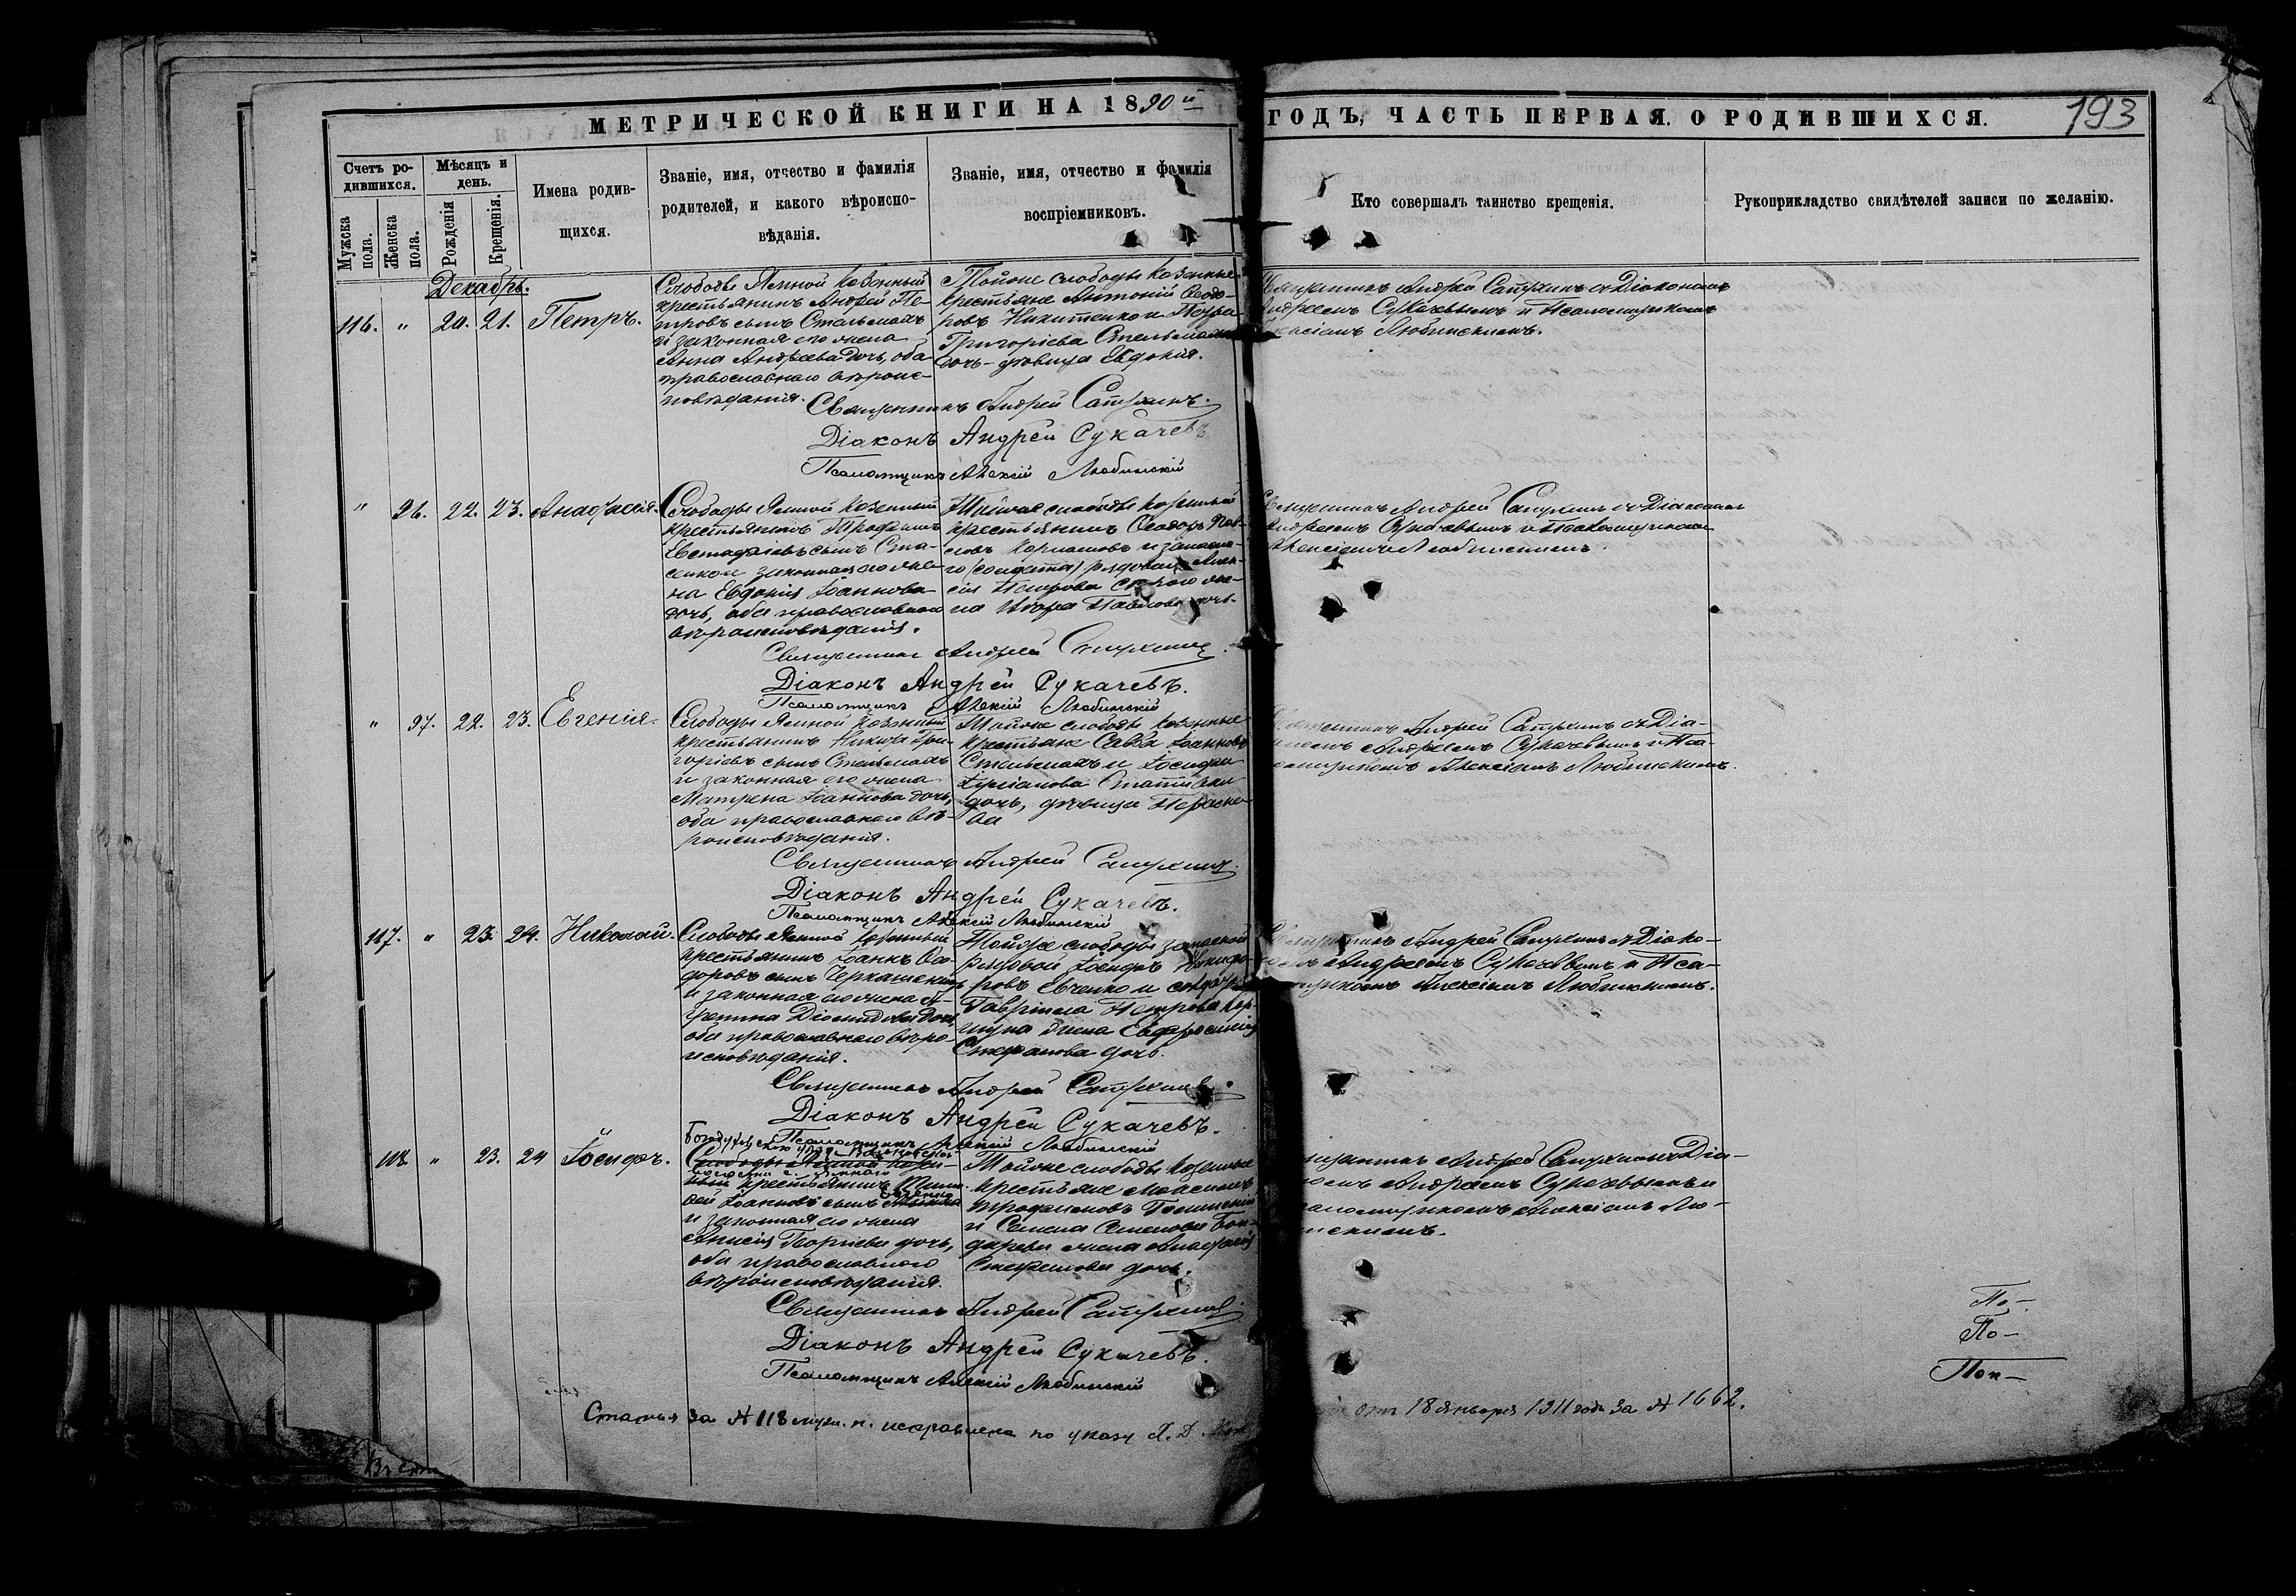 МЕТРИЧЕСКОЙ КНИГИ НА 1890й ГОДЪ, ЧАСТЬ ПЕРВАЯ. О РОДИВШИХСЯ.
193
Счетъ ро-
дившихся.
Мужска пола.
Женска пола.
Мѣсяцъ и
день.
Рожденія
Крещенія.
Имена родив-
щихся.
Званіе, имя, отчество и фамилія
родителей, и какого вѣроиспо-
вѣданія.
Званіе, имя, отчество и фамилія
воспріемниковъ.
Кто совершалъ таинство крещенія.
Рукоприкладство свидѣтелей записи по желанію.
Декабрь.
116. " 20. 21. Петръ.
Слободы Ямной казенный
крестьянинъ Андрей Пе-
тровъ сынъ Стельмахъ
и законная его жена
Анна Андреева дочь, оба
православнаго вѣроис-
повѣданія.
Тойже слободы казенные
крестьяне Антоній Ѳеодо-
ровъ Никитенко и Петра
Григоріева Стельмаха
дочь-дѣвица Евдокія.
Священникъ Андрей Сапухинъ съ Діакономъ
Андреемъ Сукачевымъ и Псаломщикомъ
Алексіемъ Любинскимъ.
Священникъ Андрей Сапухинъ.
Діаконъ Андрей Сукачевъ
Псаломщикъ Алексій Любинскій
" 96. 22. 23. Анастасія.
Слободы Ямной казенный
крестьянинъ Трофимъ
Евстафіевъ сынъ
законная его же-
на Евдокія Іоаннова
дочь, оба православнаго
вѣроисповѣданія.
Тойже слободы казенный
крестьянинъ Ѳеодоръ Пав-
ловъ и запасна-
го (солдата) рядоваго Алек-
сія Петрова же-
на Павлова дочь.
Священникъ Андрей Сапухинъ съ Діакономъ
Андреемъ Сукачевымъ и Псаломщикомъ
Алексіемъ Любинскимъ.
Священникъ Андрей Сапухинъ.
Діаконъ Андрей Сукачевъ.
Псаломщикъ Алексій Любинскій
" 97. 22. 23. Евгенія.
Слободы Ямной казенный
крестьянинъ Никита Гри-
горіевъ сынъ Стельмахъ
и законная его жена
Матрена Іоаннова дочь,
оба православнаго вѣ-
роисповѣданія.
Тойже слободы казенные
крестьяне Савва Іоанновъ
Стельмахъ и Іосифа
дочь, дѣвица Параске-
ва
Священникъ Андрей Сапухинъ съ Діа-
кономъ Андреемъ Сукачевымъ и Пса-
ломщикомъ Алексіемъ Любинскимъ.
Священникъ Андрей Сапухинъ.
Діаконъ Андрей Сукачевъ.
Псаломщикъ Алексій Любинскій
117. " 23. 24. Николай.
Слободы Ямной казенный
крестьянинъ Іоаннъ Ѳео-
доровъ сынъ Черкашенинъ
и законная его жена А-
грепина Діомидова дочь,
оба православнаго вѣро-
исповѣданія.
Тойже слободы запасной
рядовой Іосифъ Никифо-
ровъ Евченко и солдата
Гавріила Петрова
жена Евфросинія
Стефанова дочь.
Священникъ Андрей Сапухинъ съ Діако-
номъ Андреемъ Сукачевымъ и Пса-
ломщикомъ Алексіемъ Любинскимъ.
Священникъ Андрей Сапухинъ.
Діаконъ Андрей Сукачевъ.
Псаломщикъ Алексій Любинскій
118. " 23. 24 Іосифъ.
Богодуховскаго уѣзда
Слободы Ямной казен-
ный крестьянинъ Тимо-
ѳей Іоанновъ сынъ
и законная его жена
Анисія Георгіева дочь,
оба православнаго
вѣроисповѣданія.
Тойже слободы казенные
крестьяне Максимъ
Трофимовъ
и Семена Семенова Бон-
дарева жена Анастасія
Стефанова дочь.
Священникъ Андрей Сапухинъ съ Діа-
кономъ Андреемъ Сукачевымъ и
Псаломщикомъ Алексіемъ Лю-
бинскимъ.
Священникъ Андрей Сапухинъ.
Діаконъ Андрей Сукачевъ.
Псаломщикъ Алексій Любинскій
По-
По-
Поп-
Статья за № 118 муж. п. исправлена по указу Х. Д. отъ 18 января 1911 года за № 1662.